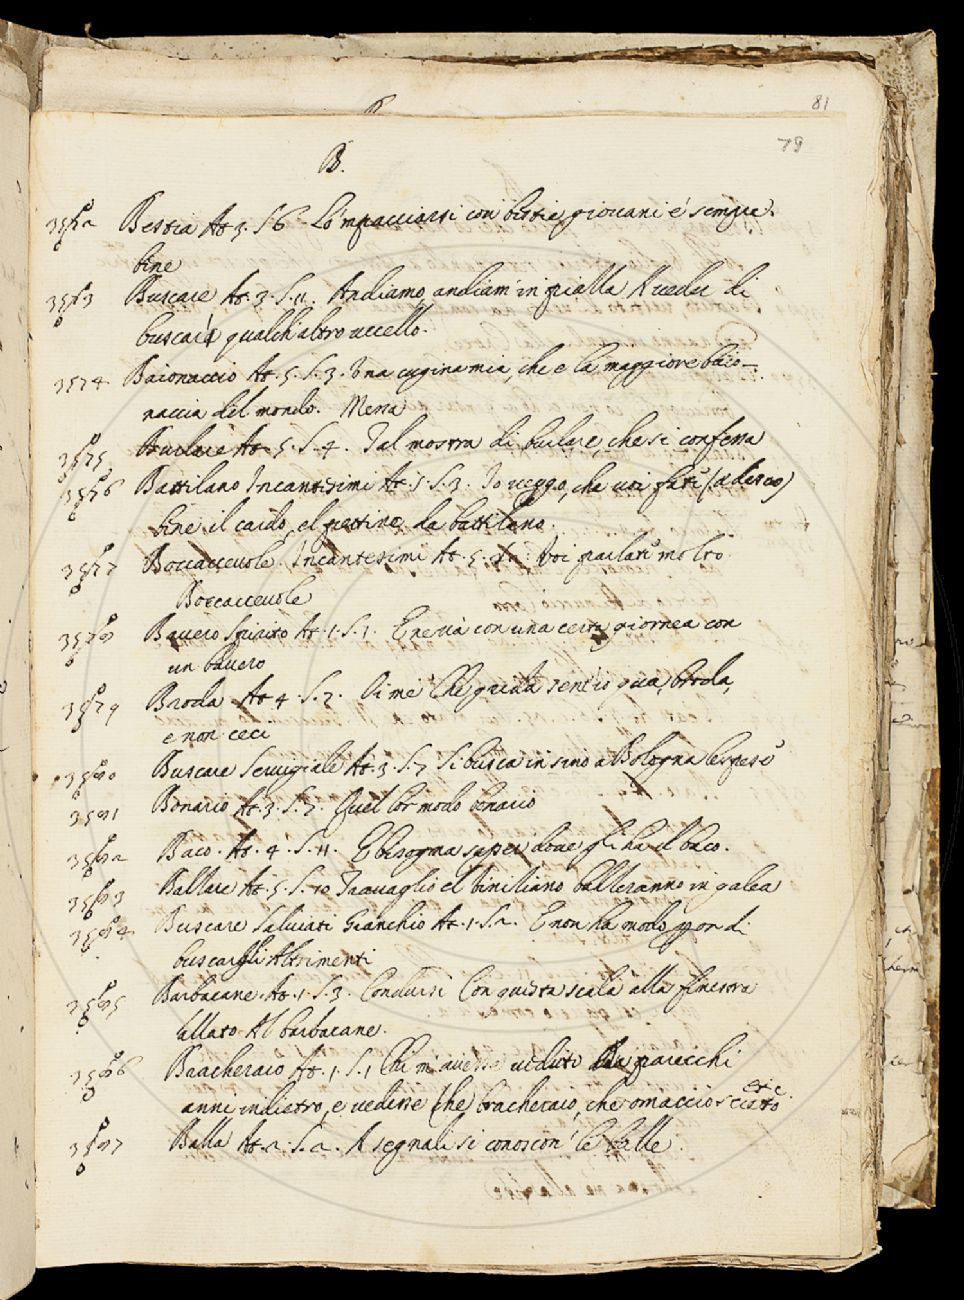 81
79
B.
3572 Bestia At. 5. S. 6. Lo 'mpacciarsi con bestie giovani è sempre
bene
3573 Buscare At. 3. S. 11. Andiamo, andiam in piazza A veder di
buscare qualch' altro uccello.
3574 Baionaccio At. 5. S. 3. Una cugina mia, che e la maggiore baio-
naccia del mondo. Mena
3575 Burlare At. 5. S. 4. Fal mostra di burlare, che si conferma
3576 Battilano Incantesimi At. 5. S. 3. Io veggo, che voi fate (a desco)
bene il cardo, e 'l pettine da battilano.
3577 Boccaccevole. Incantesimi At. 5. Voi parlate molto
Boccaccevole
3578 Bavero Spirito At. 1. S. 1. E ne va con una certa giornea con
un bavero
3579 Broda At. 4. S. 2. Oime Che grida sent' io qua, broda,
e non ceci
3580 Buscare Servigiale At. 3. S. 7 Si busca insino a Bologna le spese
3581 Bonario At. 3. S. 7. Quel lor modo bonario
3582 Baco. At. 4. S. 11. E bisogna saper dove gli ha il baco.
3583 Ballare At. 5. S. 10 Travaglio e 'l Biniliano balleranno in galea
3584 Buscare Salviati Granchio At. 1. S. 2. E non ha modo ognor di
buscargli Altrimenti
3585 Barbacane. At. 1. S. 3. Condursi Con questa scala alla finestra
Allato Al barbacane.
3586 Bracheraio At. 1. S. 1 Chi m' avesse veduto da parecchi
anni indietro, e vedesse (che) bracheraio, che omaccio scietto
3587 Balla At. 2. S. 2. A segnali si conoscon' le balle.